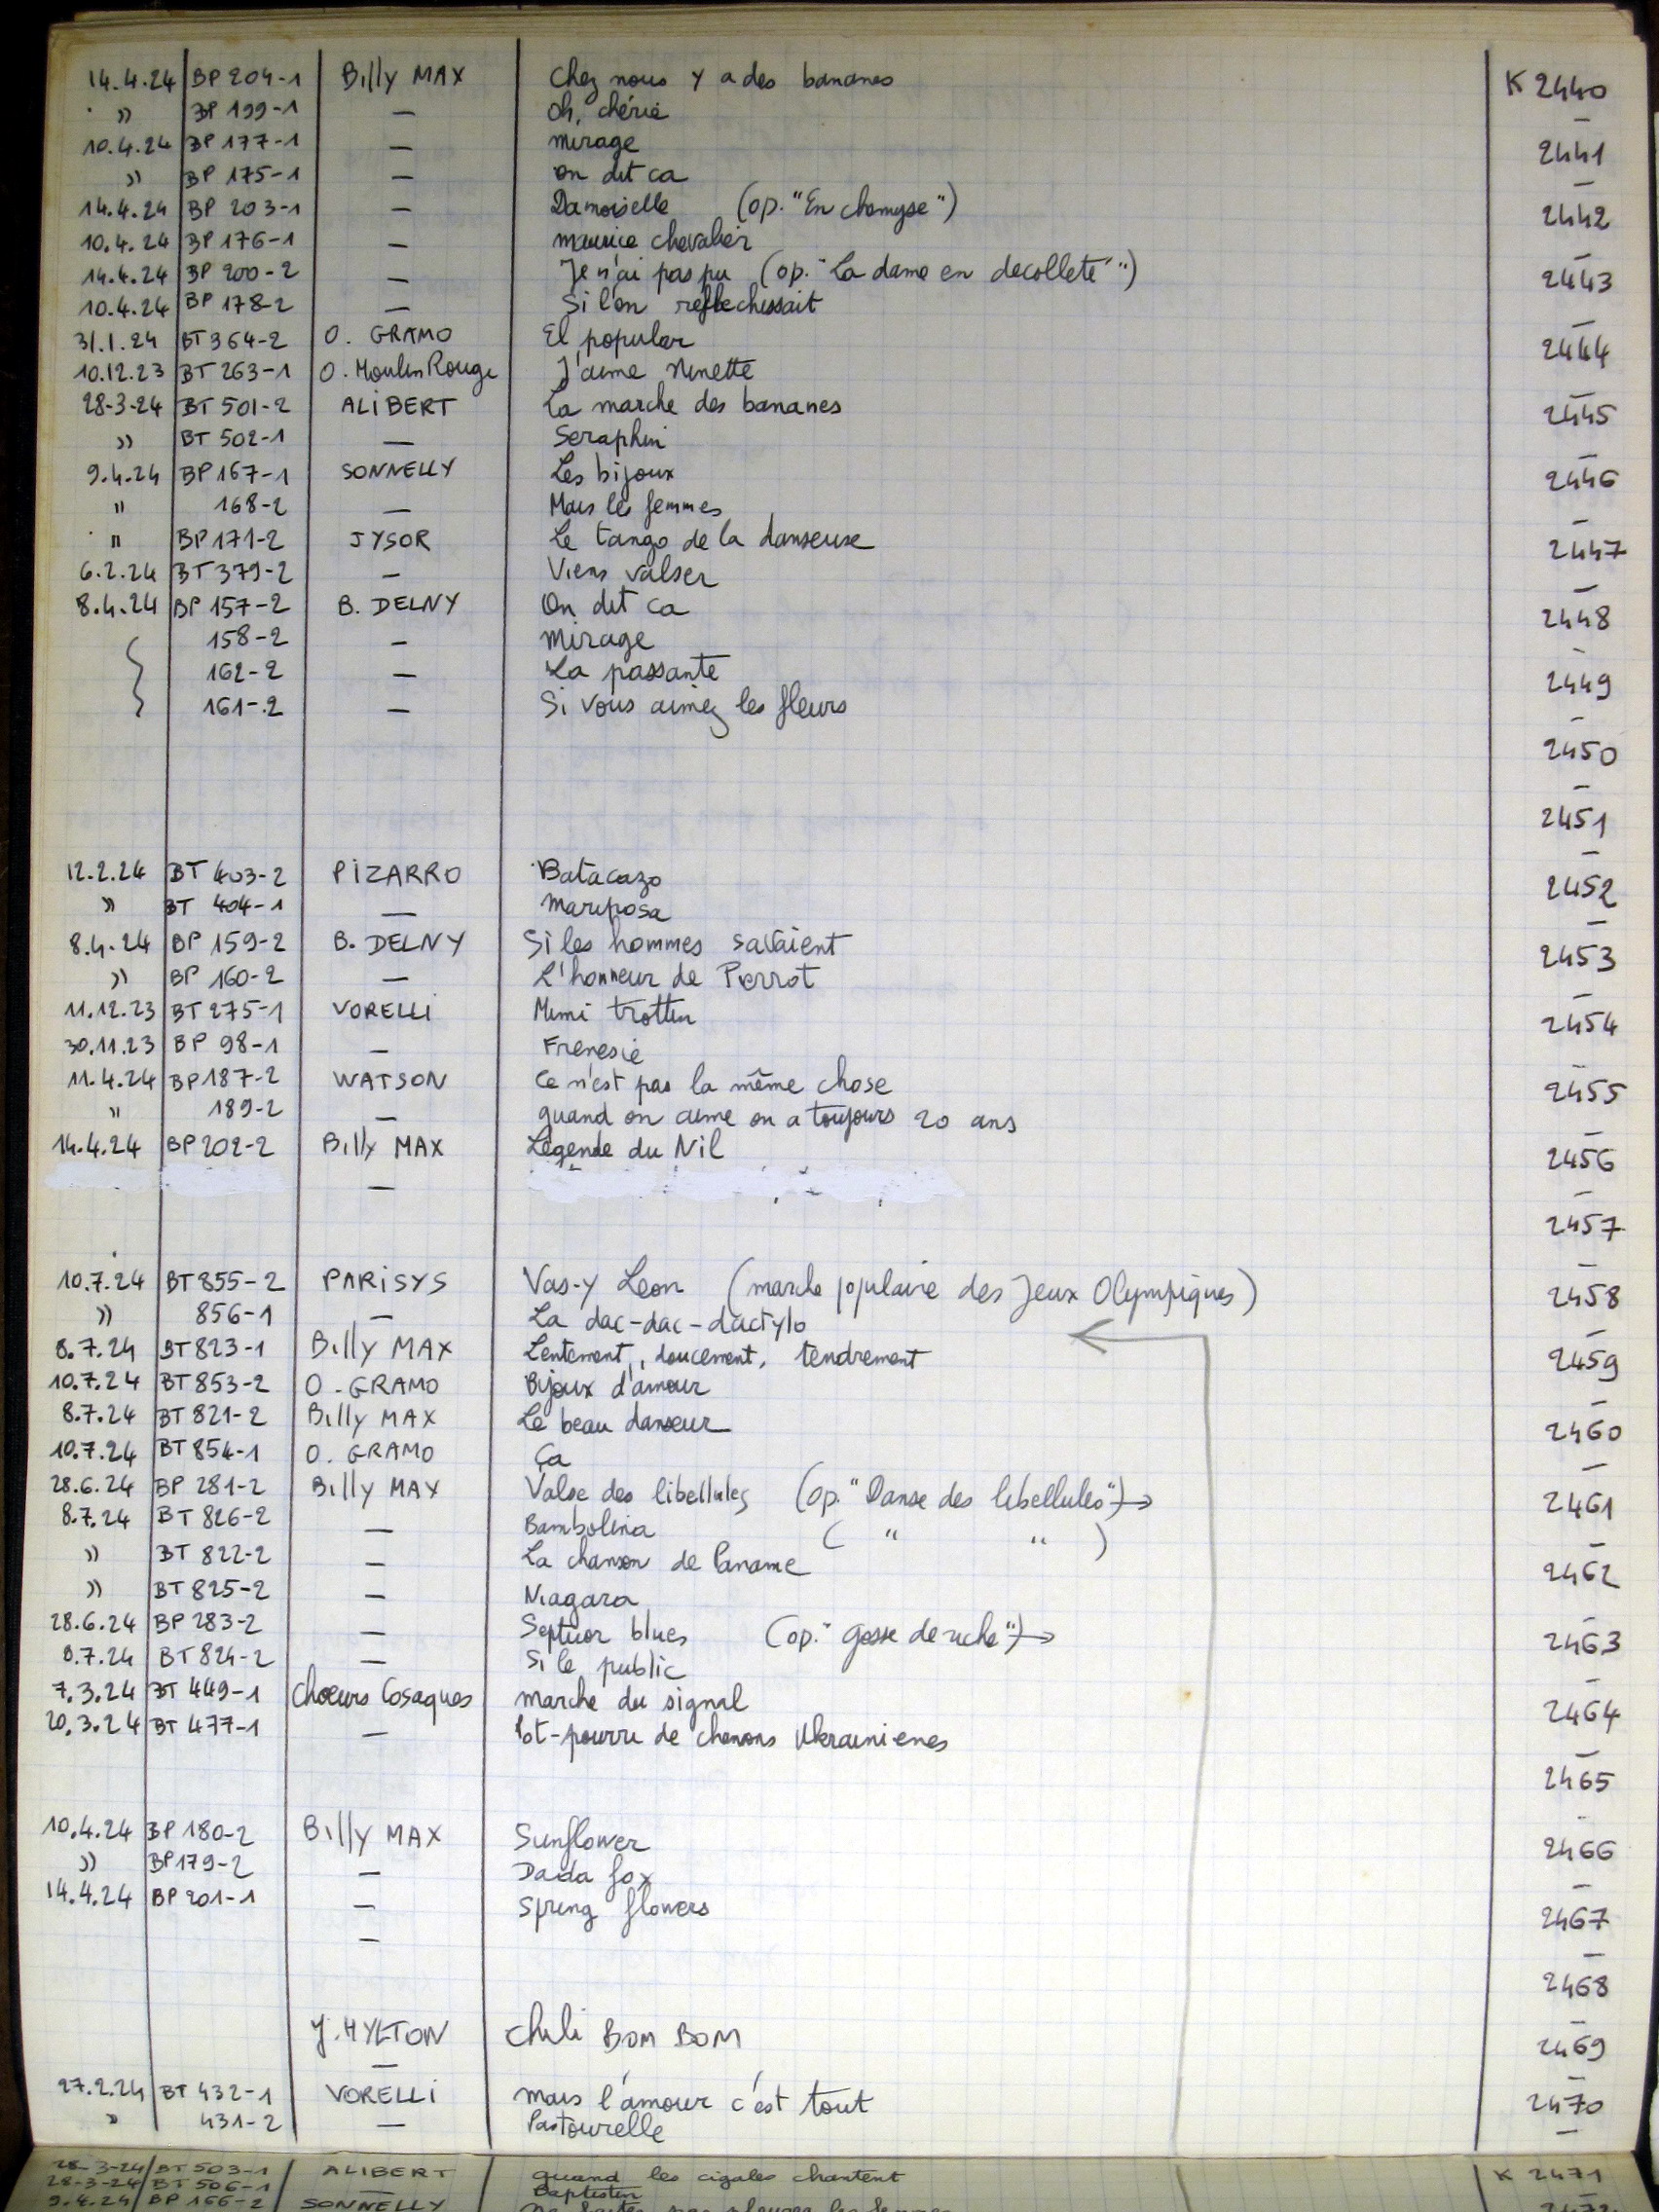 14.4.24 BP 204-1 Billy MAX Chez nous y a des bananes K 2440
" BP 199-1 — Oh, chérie —
10.4.24 BP 177-1 — Mirage 2441
" BP 175-1 — On dit ca —
14.4.24 BP 203-1 — Damoiselle (op. "En chemyse") 2442
10.4.24 BP 176-1 — Maurice Chevalier —
14.4.24 BP 200-2 — Je n'ai pas pu (op. "La dame en decolleté") 2443
10.4.24 BP 178-2 — Si l'on reflechissait —
31.1.24 BT 364-2 O. GRAMO El popular 2444
10.12.23 BT 263-1 O. Moulin Rouge J'aime Ninette —
28-3-24 BT 501-2 ALIBERT La marche des bananes 2445
" BT 502-1 — Seraphin —
9.4.24 BP 167-1 SONNELLY Les bijoux 2446
" 168-2 — Mais les femmes —
" BP 171-2 JYSOR Le tango de la danseuse 2447
6.2.24 BT 379-2 — Viens valser —
8.4.24 BP 157-2 B. DELNY On dit ca 2448
158-2 — Mirage —
162-2 — La passante 2449
161-2 — Si vous aimez les fleurs —
2450
—
2451
—
12.2.24 BT 403-2 PIZARRO Batacazo 2452
" BT 404-1 — Mariposa —
8.4.24 BP 159-2 B. DELNY Si les hommes savaient 2453
" BP 160-2 — L'honneur de Pierrot —
11.12.23 BT 275-1 VORELLI Mimi trottin 2454
30.11.23 BP 98-1 — Frenesie —
11.4.24 BP 187-2 WATSON Ce n'est pas la même chose 2455
" 189-2 — Quand on aime on a toujours 20 ans —
14.4.24 BP 202-2 Billy MAX Légende du Nil 2456
— —
2457
—
10.7.24 BT 855-2 PARISYS Vas-y Leon (marche populaire des Jeux Olympiques) 2458
" 856-1 — La dac-dac-dactylo —
8.7.24 BT 823-1 Billy MAX Lentement, doucement, tendrement 2459
10.7.24 BT 853-2 O. GRAMO Bijoux d'amour —
8.7.24 BT 821-2 Billy MAX Le beau danseur 2460
10.7.24 BT 854-1 O. GRAMO Ça —
28.6.24 BP 281-2 Billy MAX Valse des libellules (op. "Danse des libellules") → 2461
8.7.24 BT 826-2 — Bambolina ( " " ) —
" BT 822-2 — La chanson de Paname 2462
" BT 825-2 — Niagara —
28.6.24 BP 283-2 — Septuor blues (op. "Gosse de riche") → 2463
8.7.24 BT 824-2 — Si le public —
7.3.24 BT 449-1 Choeurs Cosaques Marche du signal 2464
20.3.24 BT 477-1 — Pot-pourri de chansons Ukrainienes —
2465
—
10.4.24 BP 180-2 Billy MAX Sunflower 2466
" BP 179-2 — Dada fox —
14.4.24 BP 201-1 — Spring flowers 2467
— —
2468
—
J. HYLTON Chili BOM BOM 2469
— —
27.2.24 BT 432-1 VORELLI Mais l'amour c'est tout 2470
" 431-2 — Pastourelle —
28-3-24 BT 503-1 ALIBERT Quand les cigales chantent K 2471
28-3-24 BT 506-1 — Baptistin
9.4.24 BP 166-2 SONNELLY 2472